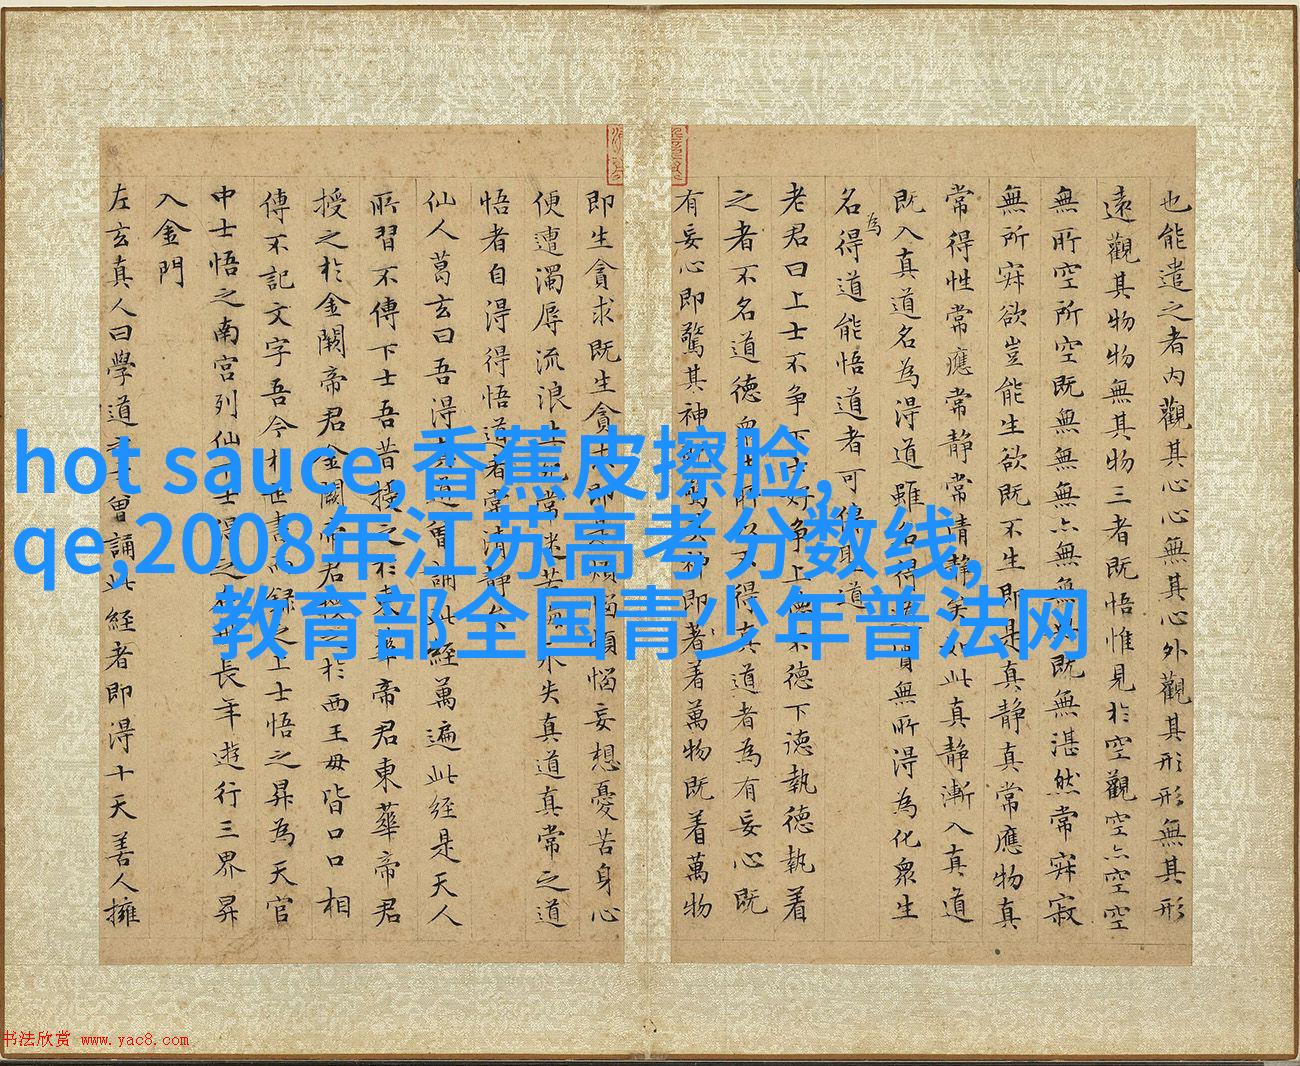 也能遣之者内觀其心心無其心外觀其形形無其形
遠觀其物物無其物三者既悟惟見於空觀空亦空空
無所空所空既無無無亦無無無既無湛然常寂寂
無所寂欲豈能生欲既不生即是真静真常應物真
常得性常應常静常清静矣如此真静漸入真道
既入真道名為得道雖名得道實無所得為化衆生
名為得道能悟道者可傳聖道
老君曰上士不争下士好争上德不德下德執德執着
之者不名道德衆生所以不得真道者為有妄心既
有妄心即驚其神既驚其神即著着萬物既着萬物
即生貪求既生貪求即是煩惱煩惱妄想憂苦身心
便遭濁辱流浪生死常沈苦海永失真道真常之道
悟者自得得悟道者常清静矣
仙人葛玄曰吾得真道曾誦此經萬遍此經是天人
所習不傳下士吾昔授之於東華帝君東華帝君
授之於金闕帝君金闕帝君授之於西王母皆口口相
傳不記文字吾今於世書而録之上士悟之昇為天官
中士悟之南宫列仙士得之世長年遊行三界昇
入金門
左玄真人曰學道之士曾誦此經者即得十天善人擁
hot sauce,香蕉皮擦脸,
qe,2008年江苏高考分数线,
教育部全国青少年普法网
书法欣赏 www.yac8.com